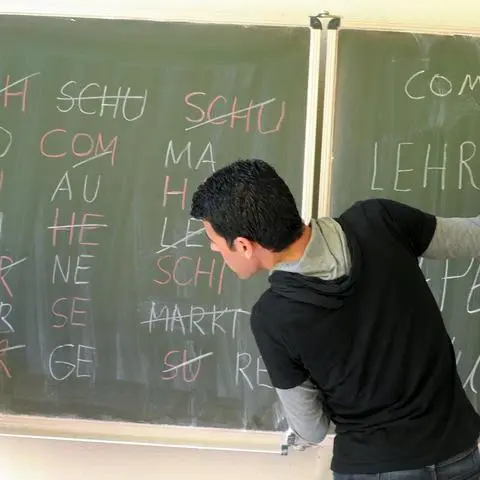 H SCHU SCHU
COM MA
AU H
HE LE
NE SCHI
R SE MARKT
R GE SU RE
COM
LEHR